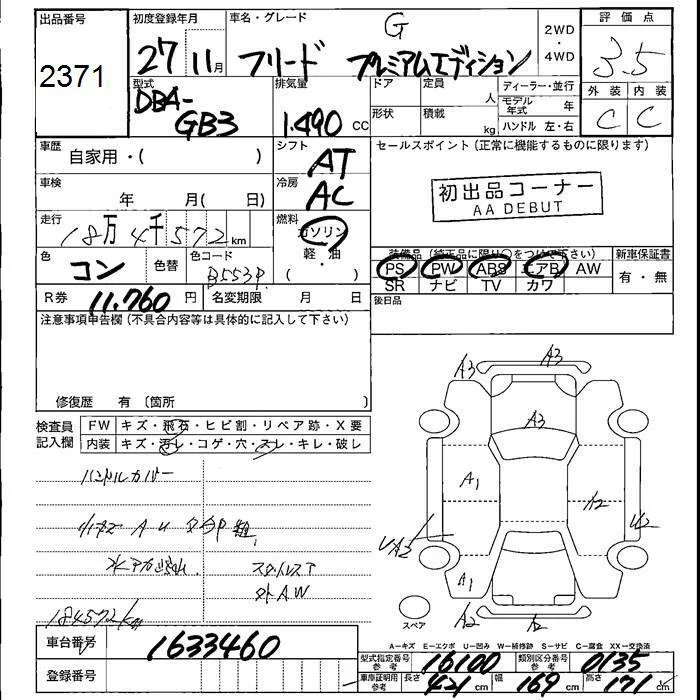 出品番号
2371
初度登録年月
27 11月
車名・グレード
G
フリード プレミアムエディション
2WD
・
4WD
評価点
3.5
外装 内装
C C
型式
DBA-
GB3
排気量
1.490 CC
ドア
定員
人
形状
積載
kg
ディーラー・並行
モデル年式 年
ハンドル 左・右
車歴
自家用・( )
シフト
AT
セールスポイント (正常に機能するものに限ります)
初出品コーナー
AA DEBUT
車検
年 月( 日)
冷房
AC
走行
18万4千572km
燃料
ガソリン
軽・油
( ・ )
色
コン
色替
色コード
B553P
装備品 (純正品に限り○をつけて下さい)
新車保証書
PS PW ABS エアB AW
有・無
SR ナビ TV カワ
R券 11.760円
名変期限 月 日
後日品
注意事項申告欄 (不具合内容等は具体的に記入して下さい)
修復歴 有 〔箇所 〕
検査員
記入欄
FW キズ・飛石・ヒビ割・リペア跡・X要
内装 キズ・汚レ・コゲ・穴・スレ・キレ・破レ
ハンドルカバー
スタッドレス
外AW
184572km
A3 A3
A3
A1
A2
U2
UA3
A1
A2
A2
スペア
A-キズ E-エクボ U-凹み W-補修跡 S-サビ C-腐食 XX-交換済
車台番号
1633460
登録番号
型式指定番号
参考
16100
類別区分番号
参考
0135
車庫証明用
参考
長さ 421 cm
幅 169 cm
高さ 171 cm